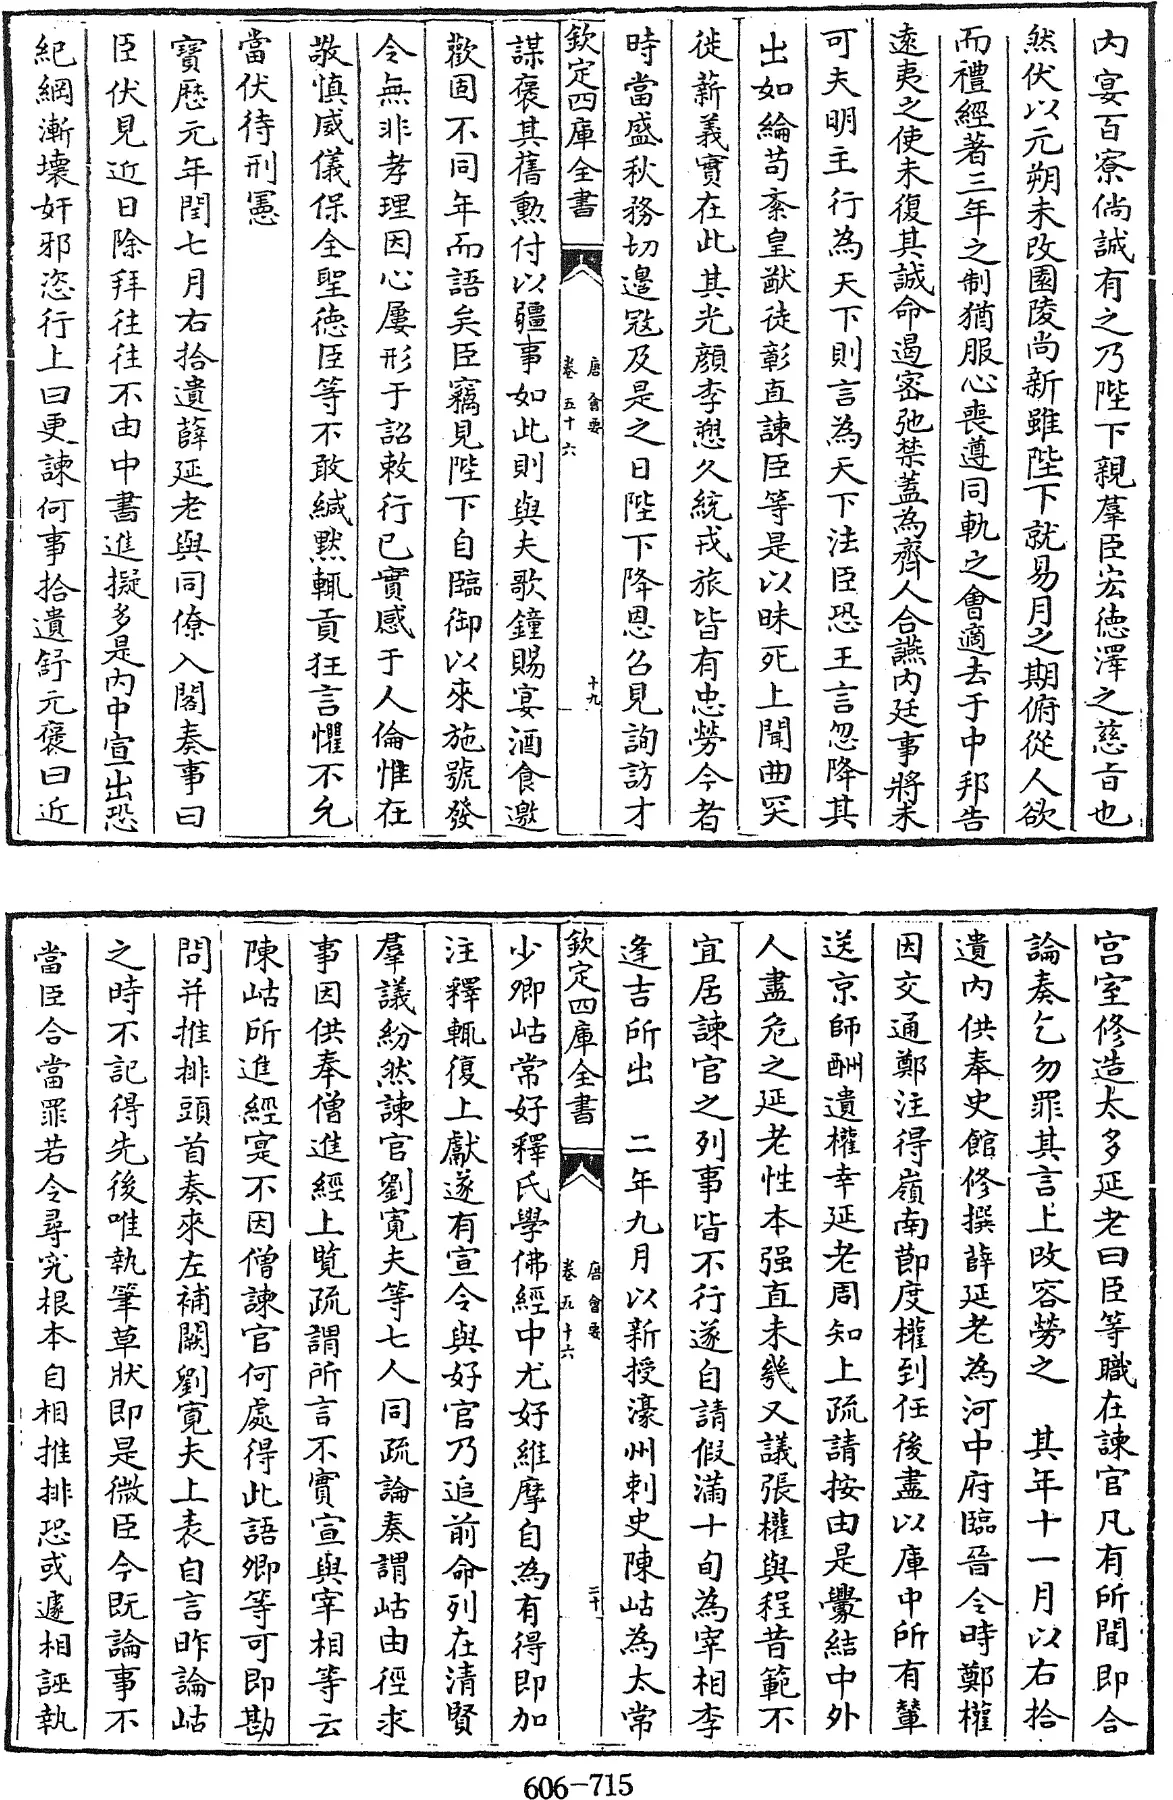 内宴百寮倘誠有之乃陛下親羣臣宏徳澤之慈旨也
然伏以元朔未改園陵尚新雖陛下就易月之期俯從人欲
而禮經著三年之制猶服心喪遵同軌之會適去于中邦告
逺夷之使未復其誠命遏密弛禁蓋為齊人合讌内廷事將未
可夫明主行為天下則言為天下法臣恐王言忽降其
出如綸苟紊皇猷徒彰直諫臣等是以昧死上聞曲突
徙薪義實在此其光顔李愬久統戎旅皆有忠勞今者
時當盛秋務切邉㓂及是之日陛下降恩召見詢訪才
欽定四庫全書
唐會要
卷五十六
十九
謀褒其舊勲付以疆事如此則與夫歌鐘賜宴酒食邀
歡固不同年而語矣臣竊見陛下自臨御以來施號發
令無非孝理因心屢形于詔敕行已實感于人倫惟在
敬慎威儀保全聖徳臣等不敢緘黙輒貢狂言懼不允
當伏待刑憲
寶厯元年閏七月右拾遺薛延老與同僚入閣奏事曰
臣伏見近日除拜往往不由中書進擬多是内中宣出恐
紀綱漸壞奸邪恣行上曰更諫何事拾遺舒元褒曰近
宫室修造太多延老曰臣等職在諫官凡有所聞即合
論奏乞勿罪其言上改容勞之　其年十一月以右拾
遺内供奉史館修撰薛延老為河中府臨晉令時鄭權
因交通鄭注得嶺南節度權到任後盡以庫中所有輦
送京師酬遺權幸延老周知上疏請按由是釁結中外
人盡危之延老性本强直未幾又議張權輿程昔範不
宜居諫官之列事皆不行遂自請假滿十旬為宰相李
逢吉所出　二年九月以新授濠州刺史陳岵為太常
欽定四庫全書
唐會要
卷五十六
二十
少卿岵常好釋氏學佛經中尤好維摩自為有得即加
注釋輒復上獻遂有宣令與好官乃追前命列在清賢
羣議紛然諫官劉寛夫等七人同疏論奏謂岵由徑求
事因供奉僧進經上覧疏謂所言不實宣與宰相等云
陳岵所進經寔不因僧諫官何處得此語卿等可即勘
問并推排頭首奏來左補闕劉寛夫上表自言昨論岵
之時不記得先後唯執筆草狀即是微臣今既論事不
當臣合當罪若令尋究根本自相推排恐或遽相誣執
606-715